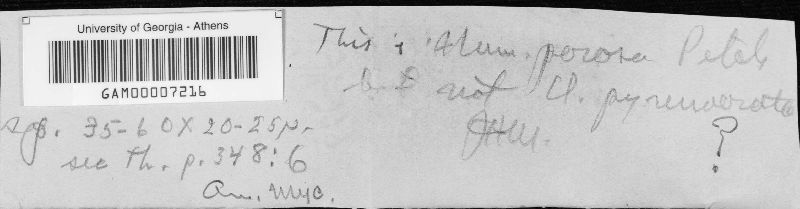 University of Georgia - Athens
GAM00007216
This is porosa Petch
but not H. pyrenocrata
JHM.
?
sps. 35-60 X 20-25µ.
see Th. p. 348:6
An. Myc.